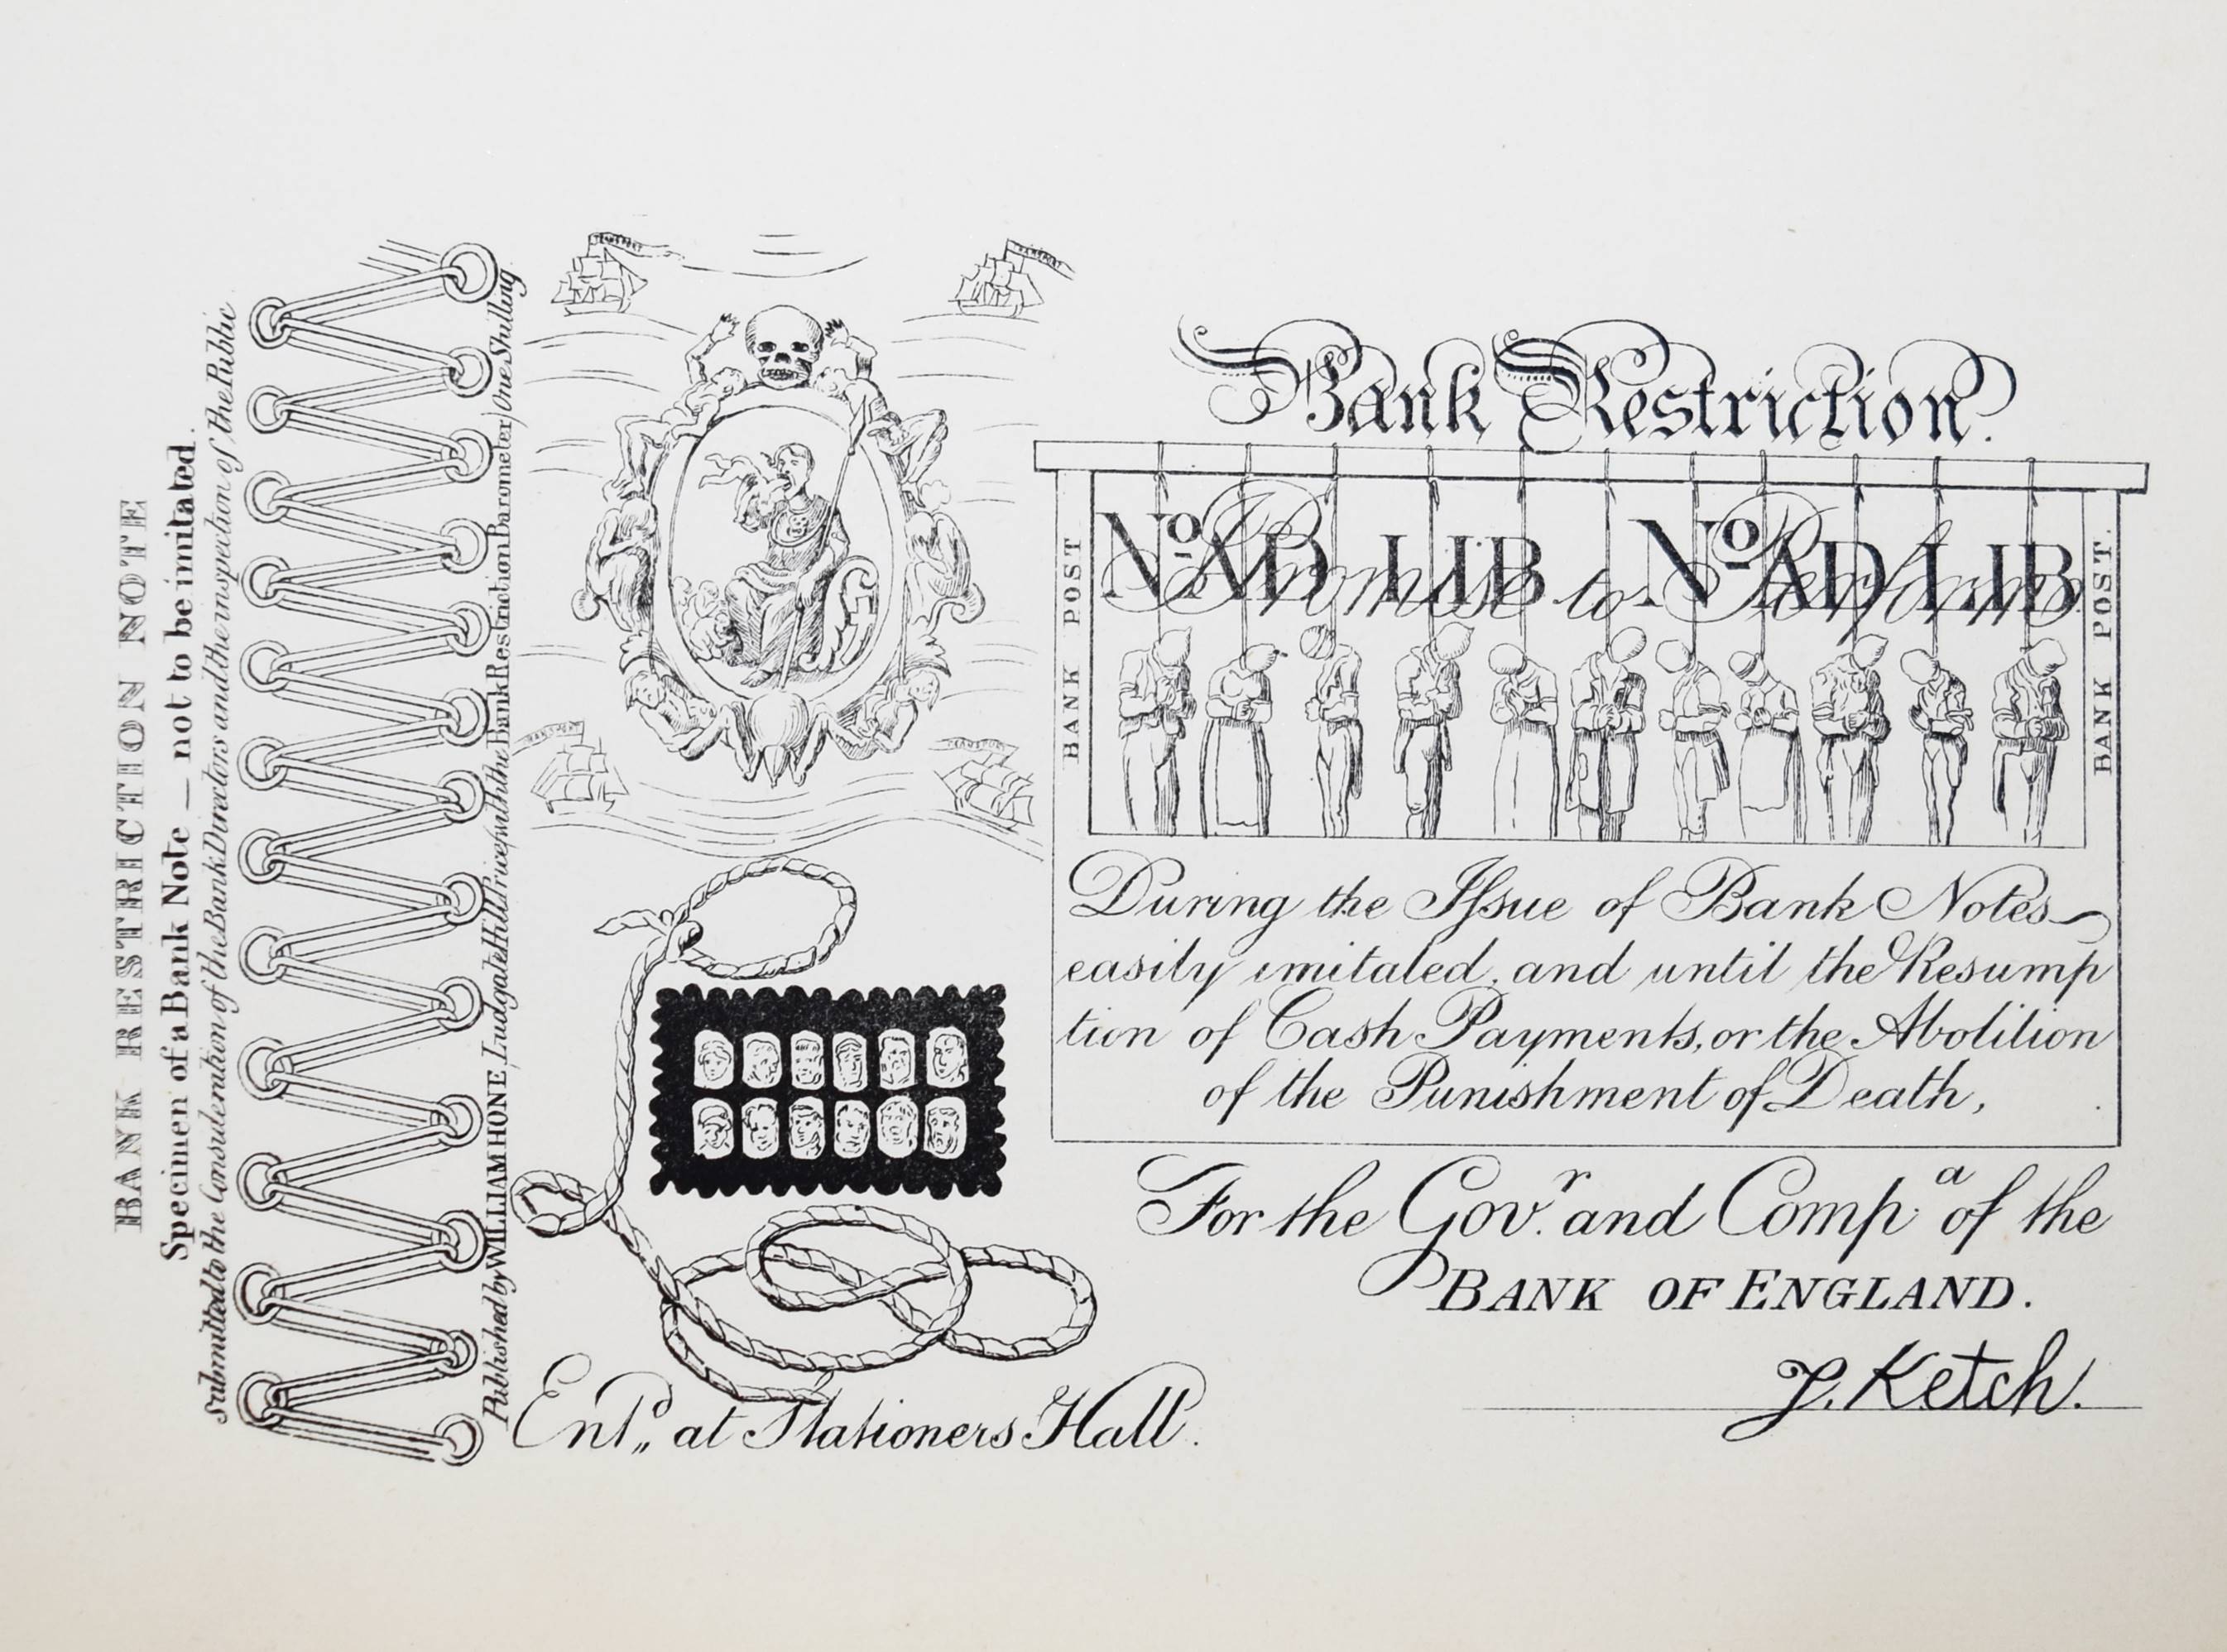 BANK RESTRICTION NOTE
Specimen of a Bank Note — not to be imitated.
Submitted to the Consideration of the Bank Directors and the inspection of the Public
Published by WILLIAM HONE, Ludgate Hill Price (with the Bank Restriction Barometer) One Shilling.
TRANSPORT
TRANSPORT
TRANSPORT
TRANSPORT
Bank Restriction.
BANK POST
BANK POST.
No AD LIB No AD LIB
I Promise to Perform
During the Issue of Bank Notes
easily imitated, and until the Resump
tion of Cash Payments, or the Abolition
of the Punishment of Death,
For the Govr. and Compa. of the
BANK OF ENGLAND.
J. Ketch.
Entd,, at Stationers Hall.